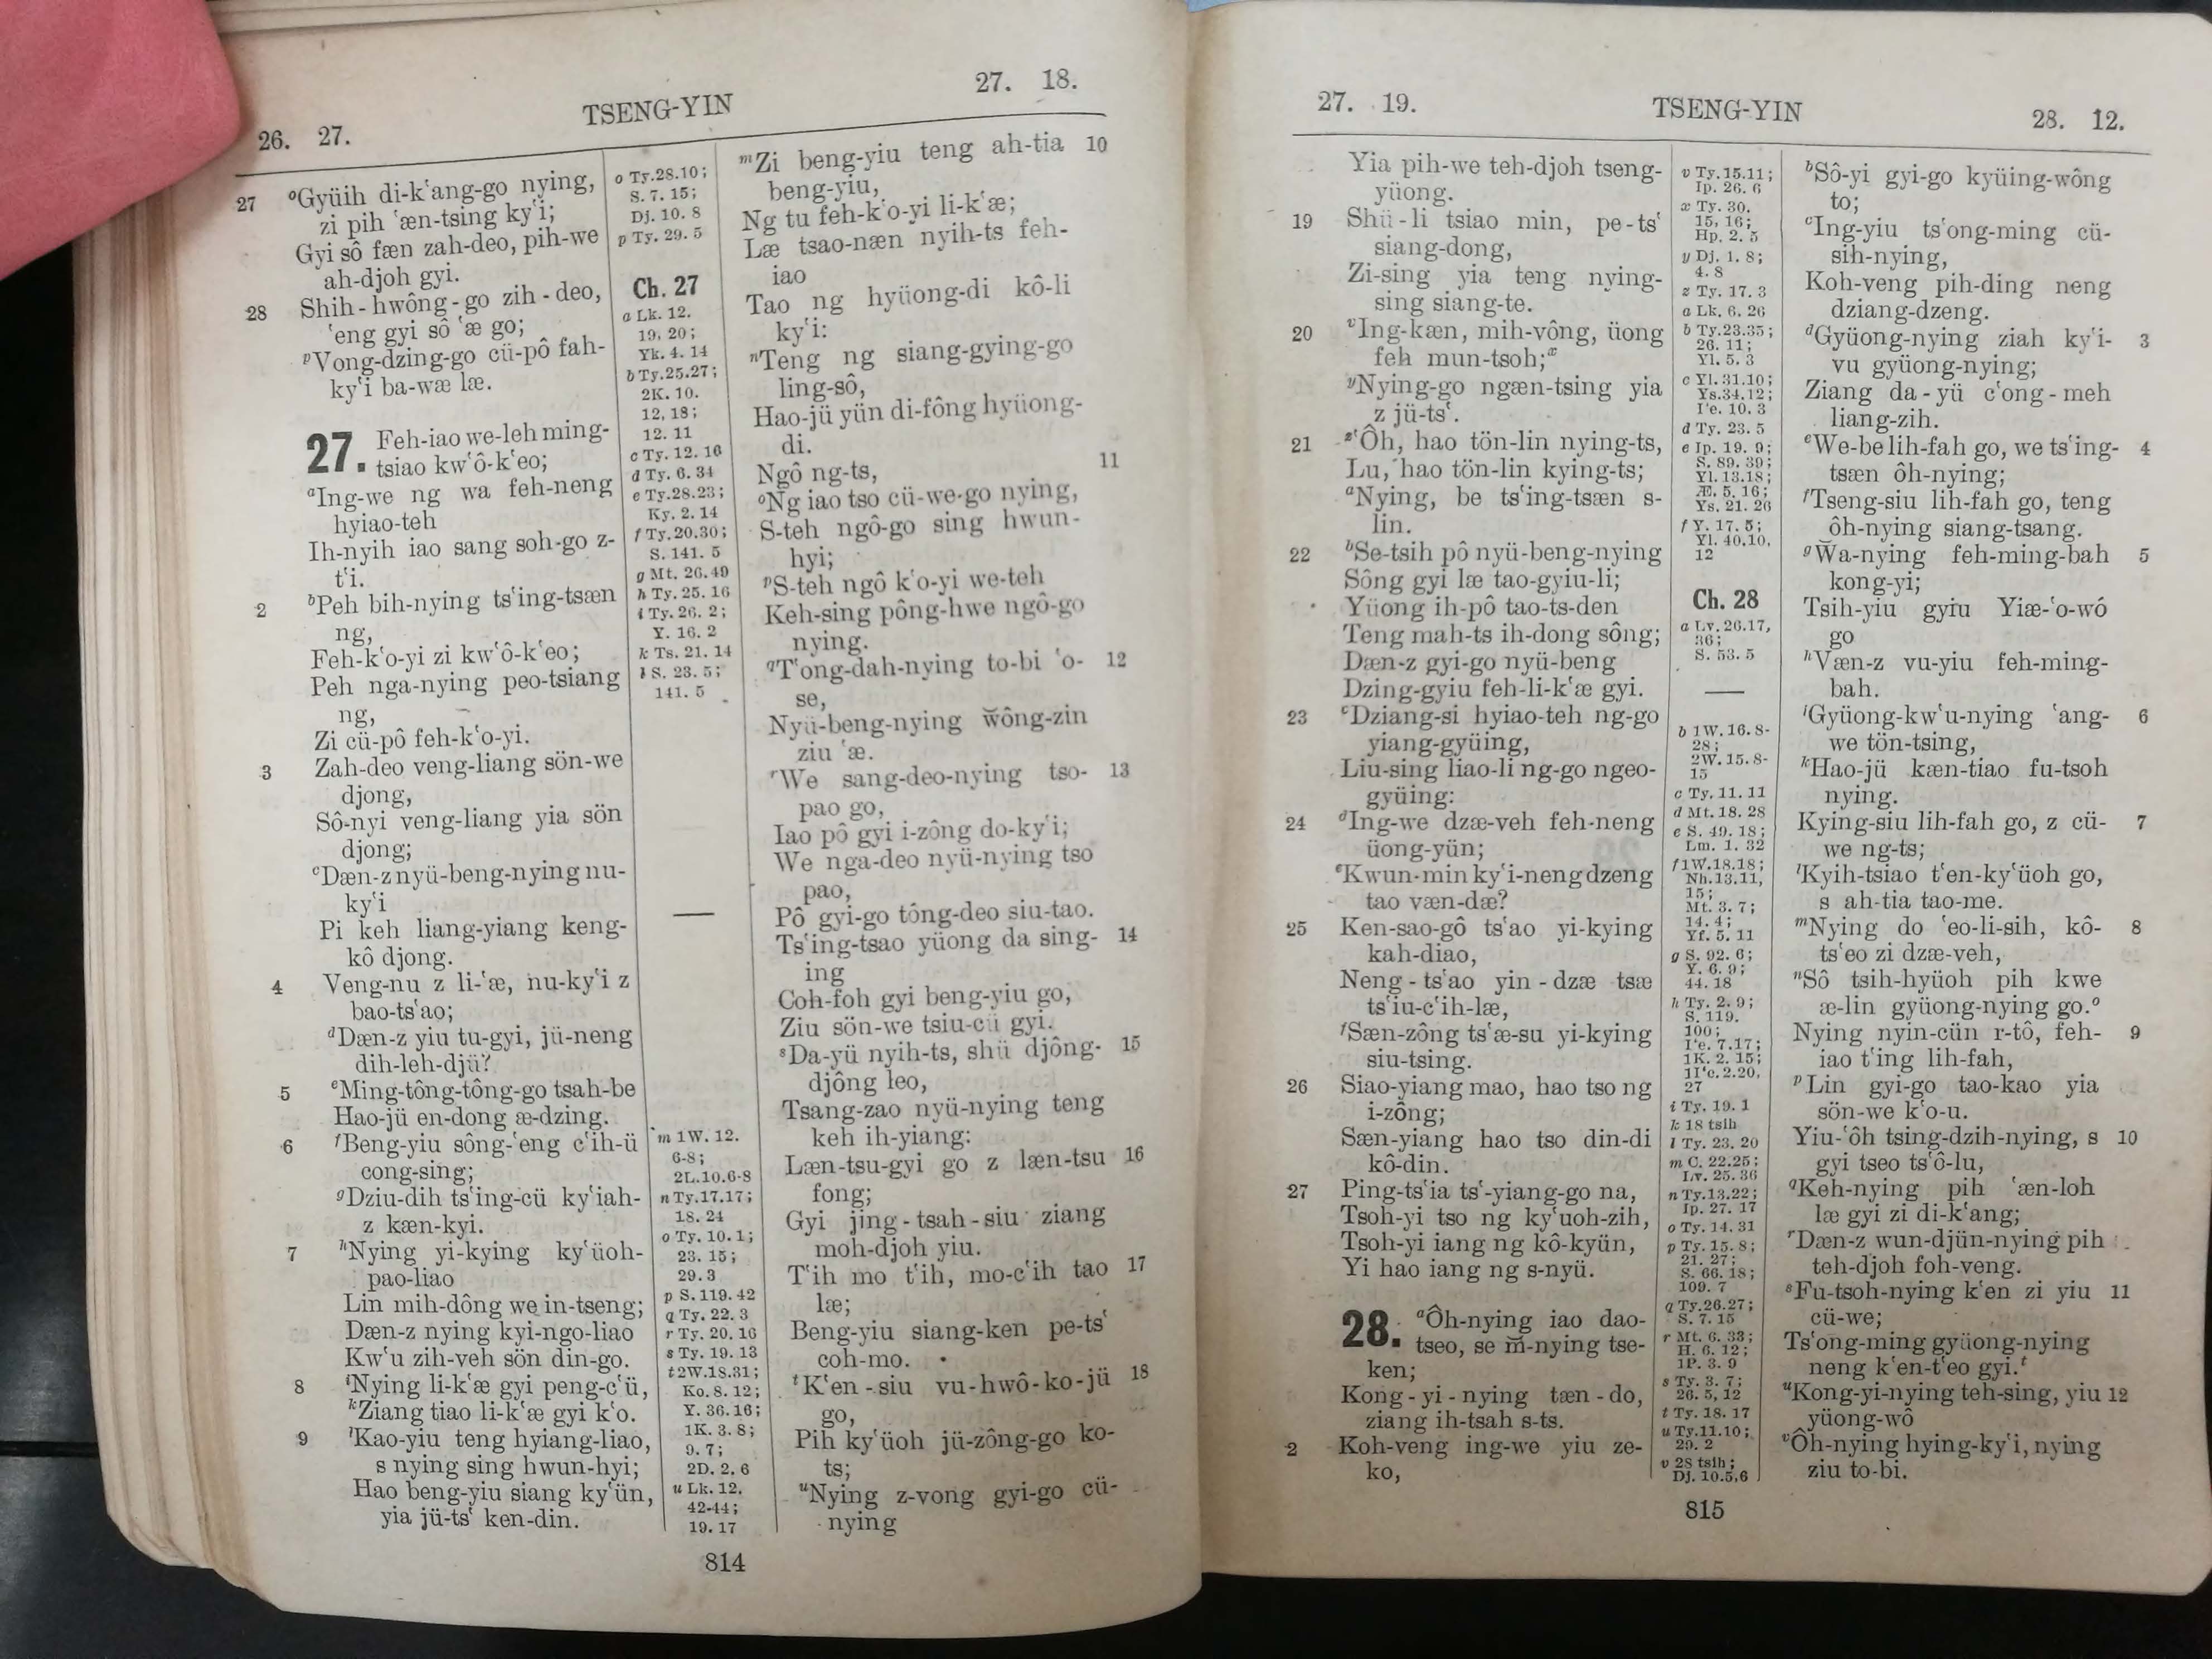 26. 27.
TSENG-YIN
27. 18.
27 ᵒGyüih di-k‘ang-go nying,
zi pih ‘æn-tsing ky‘i;
Gyi sô fæn zah-deo, pih-we
ah-djoh gyi.
28 Shih-hwông-go zih-deo,
‘eng gyi sô ‘æ go;
ᵖVong-dzing-go cü-pô fah-
ky‘i ba-wæ læ.
27. Feh-iao we-leh ming-
tsiao kw‘ô-k‘eo;
ᵃIng-we ng wa feh-neng
hyiao-teh
Ih-nyih iao sang soh-go z-
t‘i.
2 ᵇPeh bih-nying ts‘ing-tsæn
ng,
Feh-k‘o-yi zi kw‘ô-k‘eo;
Peh nga-nying peo-tsiang
ng,
Zi cü-pô feh-k‘o-yi.
3 Zah-deo veng-liang sön-we
djong,
Sô-nyi veng-liang yia sön
djong;
ᶜDæn-z nyü-beng-nying nu-
ky‘i
Pi keh liang-yiang keng-
kô djong.
4 Veng-nu z li-‘æ, nu-ky‘i z
bao-ts‘ao;
ᵈDæn-z yiu tu-gyi, jü-neng
dih-leh-djü?
5 ᵉMing-tông-tông-go tsah-be
Hao-jü en-dong æ-dzing.
6 ᶠBeng-yiu sông-‘eng c‘ih-ü
cong-sing;
ᵍDziu-dih ts‘ing-cü ky‘iah-
z kæn-kyi.
7 ʰNying yi-kying ky‘üoh-
pao-liao
Lin mih-dông we in-tseng;
Dæn-z nying kyi-ngo-liao
Kw‘u zih-veh sön din-go.
8 ⁱNying li-k‘æ gyi peng-c‘ü,
ᵏZiang tiao li-k‘æ gyi k‘o.
9 ˡKao-yiu teng hyiang-liao,
s nying sing hwun-hyi;
Hao beng-yiu siang ky‘ün,
yia jü-ts‘ ken-din.
o Ty.28.10;
S. 7. 15;
Dj. 10. 8
p Ty. 29. 5
Ch. 27
a Lk. 12.
19, 20;
Yk. 4. 14
b Ty.25.27;
2K. 10.
12, 18;
12. 11
c Ty. 12. 16
d Ty. 6. 34
e Ty.28.23;
Ky. 2. 14
f Ty.20.30;
S. 141. 5
g Mt. 26.49
h Ty. 25. 16
i Ty. 26. 2;
Y. 16. 2
k Ts. 21. 14
l S. 23. 5;
141. 5
m 1W. 12.
6-8;
2L.10.6-8
n Ty.17.17;
18. 24
o Ty. 10. 1;
23. 15;
29. 3
p S. 119. 42
q Ty. 22. 3
r Ty. 20. 16
s Ty. 19. 13
t 2W.18.31;
Ko. 8. 12;
Y. 36. 16;
1K. 3. 8;
9. 7;
2D. 2. 6
u Lk. 12.
42-44;
19. 17
ᵐZi beng-yiu teng ah-tia 10
beng-yiu,
Ng tu feh-k‘o-yi li-k‘æ;
Læ tsao-næn nyih-ts feh-
iao
Tao ng hyüong-di kô-li
ky‘i:
ⁿTeng ng siang-gying-go
ling-sô,
Hao-jü yün di-fông hyüong-
di.
Ngô ng-ts, 11
ᵒNg iao tso cü-we-go nying,
S-teh ngô-go sing hwun-
hyi;
ᵖS-teh ngô k‘o-yi we-teh
Keh-sing pông-hwe ngô-go
nying.
𐞥T‘ong-dah-nying to-bi ‘o- 12
se,
Nyü-beng-nying w̆ông-zin
ziu ‘æ.
ʳWe sang-deo-nying tso- 13
pao go,
Iao pô gyi i-zông do-ky‘i;
We nga-deo nyü-nying tso
pao,
Pô gyi-go tông-deo siu-tao.
Ts‘ing-tsao yüong da sing- 14
ing
Coh-foh gyi beng-yiu go,
Ziu sön-we tsiu-cü gyi.
ˢDa-yü nyih-ts, shü djông- 15
djông leo,
Tsang-zao nyü-nying teng
keh ih-yiang:
Læn-tsu-gyi go z læn-tsu 16
fong;
Gyi jing-tsah-siu ziang
moh-djoh yiu.
T‘ih mo t‘ih, mo-c‘ih tao 17
læ;
Beng-yiu siang-ken pe-ts‘
coh-mo.
ᵗK‘en-siu vu-hwô-ko-jü 18
go,
Pih ky‘üoh jü-zông-go ko-
ts;
ᵘNying z-vong gyi-go cü-
nying
814
27. 19.
TSENG-YIN
28. 12.
Yia pih-we teh-djoh tseng-
yüong.
19 Shü-li tsiao min, pe-ts‘
siang-dong,
Zi-sing yia teng nying-
sing siang-te.
20 ᵛIng-kæn, mih-vông, üong
feh mun-tsoh;ˣ
ʸNying-go ngæn-tsing yia
z jü-ts‘.
21 ᶻ‘Ôh, hao tön-lin nying-ts,
Lu, hao tön-lin kying-ts;
ᵃNying, be ts‘ing-tsæn s-
lin.
22 ᵇSe-tsih pô nyü-beng-nying
Sông gyi læ tao-gyiu-li;
Yüong ih-pô tao-ts-den
Teng mah-ts ih-dong sông;
Dæn-z gyi-go nyü-beng
Dzing-gyiu feh-li-k‘æ gyi.
23 ᶜDziang-si hyiao-teh ng-go
yiang-gyüing,
Liu-sing liao-li ng-go ngeo-
gyüing:
24 ᵈIng-we dzæ-veh feh-neng
üong-yün;
ᵉKwun-min ky‘i-neng dzeng
tao væn-dæ?
25 Ken-sao-gô ts‘ao yi-kying
kah-diao,
Neng-ts‘ao yin-dzæ tsæ
ts‘iu-c‘ih-læ,
ᶠSæn-zông ts‘æ-su yi-kying
siu-tsing.
26 Siao-yiang mao, hao tso ng
i-zông;
Sæn-yiang hao tso din-di
kô-din.
27 Ping-ts‘ia ts‘-yiang-go na,
Tsoh-yi tso ng ky‘uoh-zih,
Tsoh-yi iang ng kô-kyün,
Yi hao iang ng s-nyü.
28. ᵃÔh-nying iao dao-
tseo, se m̆-nying tse-
ken;
Kong-yi-nying tæn-do,
ziang ih-tsah s-ts.
2 Koh-veng ing-we yiu ze-
ko,
v Ty.15.11;
Ip. 26. 6
x Ty. 30.
15, 16;
Hp. 2. 5
y Dj. 1. 8;
4. 8
z Ty. 17. 3
a Lk. 6. 26
b Ty.23.35;
26. 11;
Yl. 5. 3
c Yl.31.10;
Ys.34.12;
I‘e. 10. 3
d Ty. 23. 5
e Ip. 19. 9;
S. 89. 39;
Yl.13.18;
Æ. 5. 16;
Ys. 21. 26
f Y. 17. 5;
Yl. 40.10,
12
Ch. 28
a Lv.26.17,
36;
S. 53. 5
b 1W. 16. 8-
28;
2W. 15. 8-
15
c Ty. 11. 11
d Mt. 18. 28
e S. 49. 18;
Lm. 1. 32
f 1W.18.18;
Nh.13.11,
15;
Mt. 3. 7;
14. 4;
Yf. 5. 11
g S. 92. 6;
Y. 6. 9;
44. 18
h Ty. 2. 9;
S. 119.
100;
I‘e. 7.17;
1K. 2. 15;
1I‘c.2.20,
27
i Ty. 19. 1
k 18 tsih
l Ty. 23. 20
m C. 22.25;
Lv. 25. 36
n Ty.13.22;
Ip. 27. 17
o Ty. 14. 31
p Ty. 15. 8;
21. 27;
S. 66. 18;
109. 7
q Ty.26.27;
S. 7. 15
r Mt. 6. 33;
H. 6. 12;
1P. 3. 9
s Ty. 3. 7;
26. 5, 12
t Ty. 18. 17
u Ty.11.10;
29. 2
v 28 tsih;
Dj. 10.5,6
ᵇSô-yi gyi-go kyüing-wông
to;
ᶜIng-yiu ts‘ong-ming cü-
sih-nying,
Koh-veng pih-ding neng
dziang-dzeng.
ᵈGyüong-nying ziah ky‘i- 3
vu gyüong-nying;
Ziang da-yü c‘ong-meh
liang-zih.
ᵉWe-be lih-fah go, we ts‘ing- 4
tsæn ôh-nying;
ᶠTseng-siu lih-fah go, teng
ôh-nying siang-tsang.
ᵍWa-nying feh-ming-bah 5
kong-yi;
Tsih-yiu gyiu Yiæ-‘o-wô
go
ʰVæn-z vu-yiu feh-ming-
bah.
ⁱGyüong-kw‘u-nying ‘ang- 6
we tön-tsing,
ᵏHao-jü kæn-tiao fu-tsoh
nying.
Kying-siu lih-fah go, z cü- 7
we ng-ts;
ˡKyih-tsiao t‘en-ky‘üoh go,
s ah-tia tao-me.
ᵐNying do ‘eo-li-sih, kô- 8
ts‘eo zi dzæ-veh,
ⁿSô tsih-hyüoh pih kwe
æ-lin gyüong-nying go.ᵒ
Nying nyin-cün r-tô, feh- 9
iao t‘ing lih-fah,
ᵖLin gyi-go tao-kao yia
sön-we k‘o-u.
Yiu-‘ôh tsing-dzih-nying, s 10
gyi tseo ts‘ô-lu,
𐞥Keh-nying pih ‘æn-loh
læ gyi zi di-k‘ang;
ʳDæn-z wun-djün-nying pih
teh-djoh foh-veng.
ˢFu-tsoh-nying k‘en zi yiu 11
cü-we;
Ts‘ong-ming gyüong-nying
neng k‘en-t‘eo gyi.ᵗ
ᵘKong-yi-nying teh-sing, yiu 12
yüong-wô
ᵛÔh-nying hying-ky‘i, nying
ziu to-bi.
815